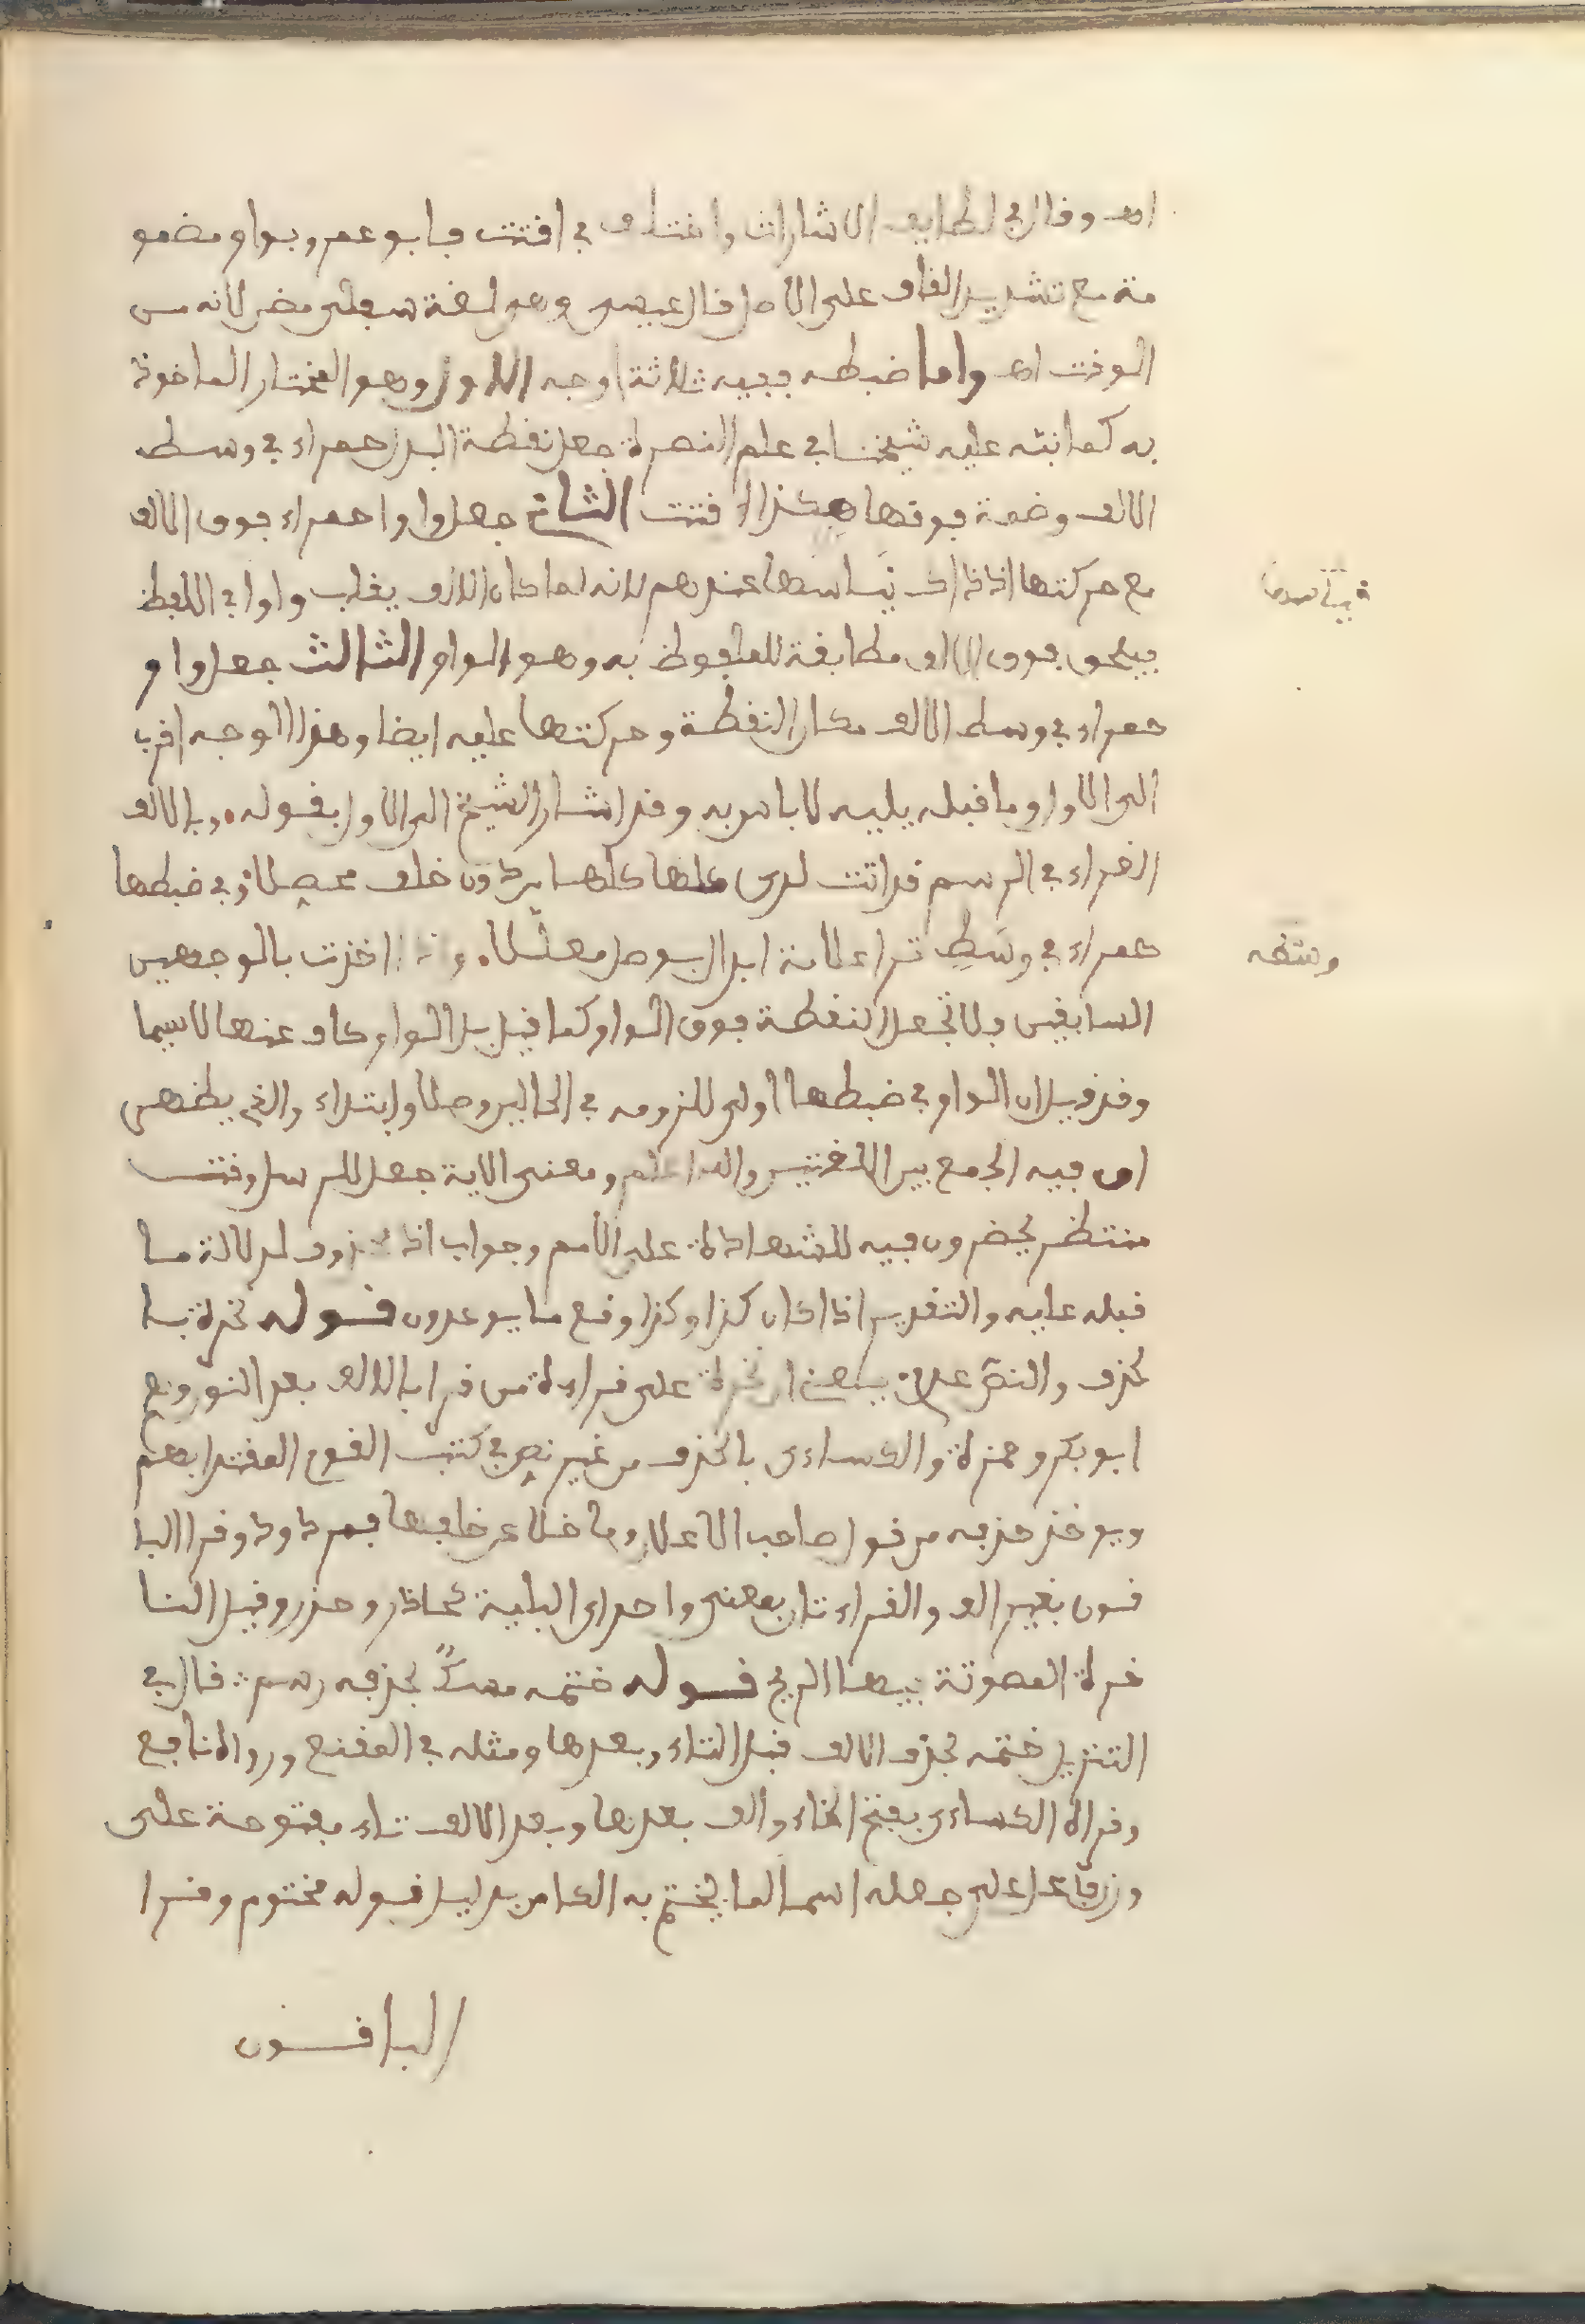 اهـ وقال في لطايف الاشارات واختلف في اقتت فابو عمرو بواو مضمو
مة مع تشديد القاف على الاصل قال عيسى وهو لغة سفلى مضر لانه من
الوقت اهـ واما ضبطه ففيه ثلاثة اوجه الاول وهو المختار الماخوذ
به كما نبّه عليه شيخنا في علم النصرة جعل نقطة البدل حمراء في وسط
الالف وضمة فوقها هكذا اقتت الثاني جعل واوا حمراء فوق الالف
مع حركتها اذ ذاك قياسها عندهم لانه لما كان الالف يقلب واوا في اللفظ
فيلحق فوق الالف مطابقة للملفوظ به وهو الواو الثالث جعل وا و
حمراء في وسط الالف مكان النقطة وحركتها عليه ايضا وهذا الوجه اقرب
الى الاول وما قبله يليه لا باس به وقد اشار الشيخ الى الاول بقوله وبالالف
القراء في الرسم قد اتت لدى كلها بدون خلف محصلا وفي ضبطها
حمراء في وسَطٍ ترا علامة ابدال بوصل معلّلا واذا اخذت بالوجهين
السابقين فلا تجعل النقطة فوق الواو كما قيل بل الواو كاف عنها لاسيما
وقد قيل ان الواو في ضبطها اولى للزومه في الحالين وصلا وابتداء والذي يظهر
ان فيه الجمع بين اللغتين والله اعلم ومعنى الاية جعل للرسل وقت
منتظر يحضرون فيه للشهادة على الامم وجواب اذا محذوف لدلالة ما
قبله عليه والتقدير اذا كان كذا وكذا وقع ما يوعدون قوله نخرة بنا
بحذف والنصّ يعني ان نخرة على قراءة من قرا بالالف بعد النون وهم
ابو بكر وحمزة والكساءى بالحذف من غير نص في كتب القوم المقتدا بهم
ويوخذ حذفه من قول صاحب الاعلان وما خلا عن خلفها فمرد ود وقرا البا
قون بغير الف والقراءتان بمعنى واحد اي البالية كحاذر وحذر وقيل النا
خرة المصوتة فيها الريح قوله ختمه مسكٌ بحذفه رسم قال في
التنزيل ختمه بحذف الالف قبل التاء وبعدها ومثله في المقنع ورواه نافع
وقراه الكساءى بفتح الخاء والف بعدها وبعد الالف تاء مفتوحة على
وزن فاعل على جعله اسما لما يختم به الكاس بدليل قوله مختوم وقرا
الباقون
وسَطه